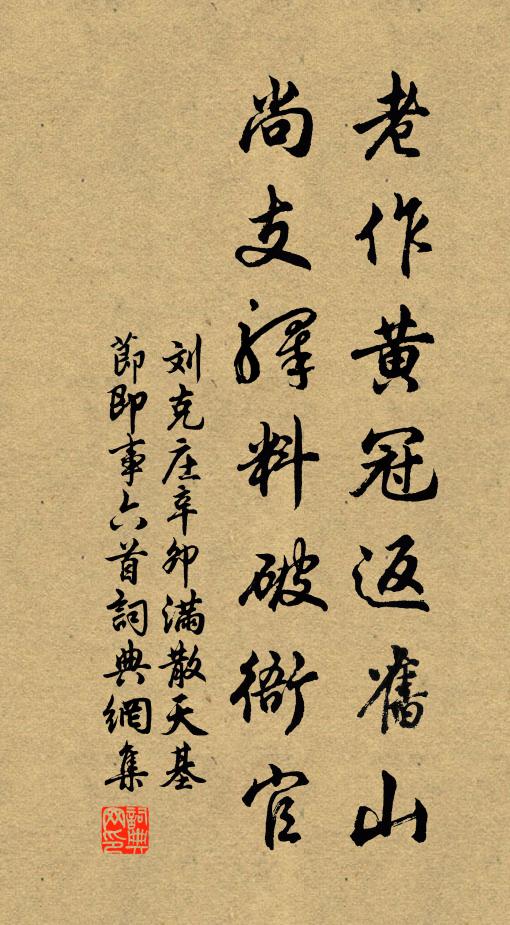 老作黄冠返舊山
尚支驛料破衙官
刘克庄辛卯满散天基
節即事六首詞典網集
詞典网印